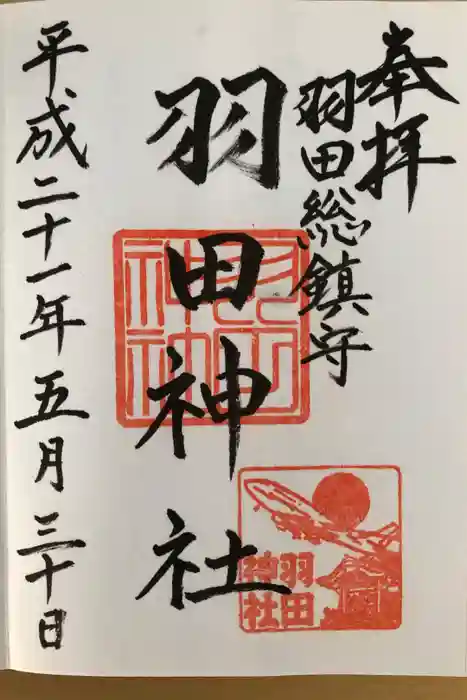 奉拝
羽田総鎮守
羽田神社
平成二十一年五月三十日
羽田
神社